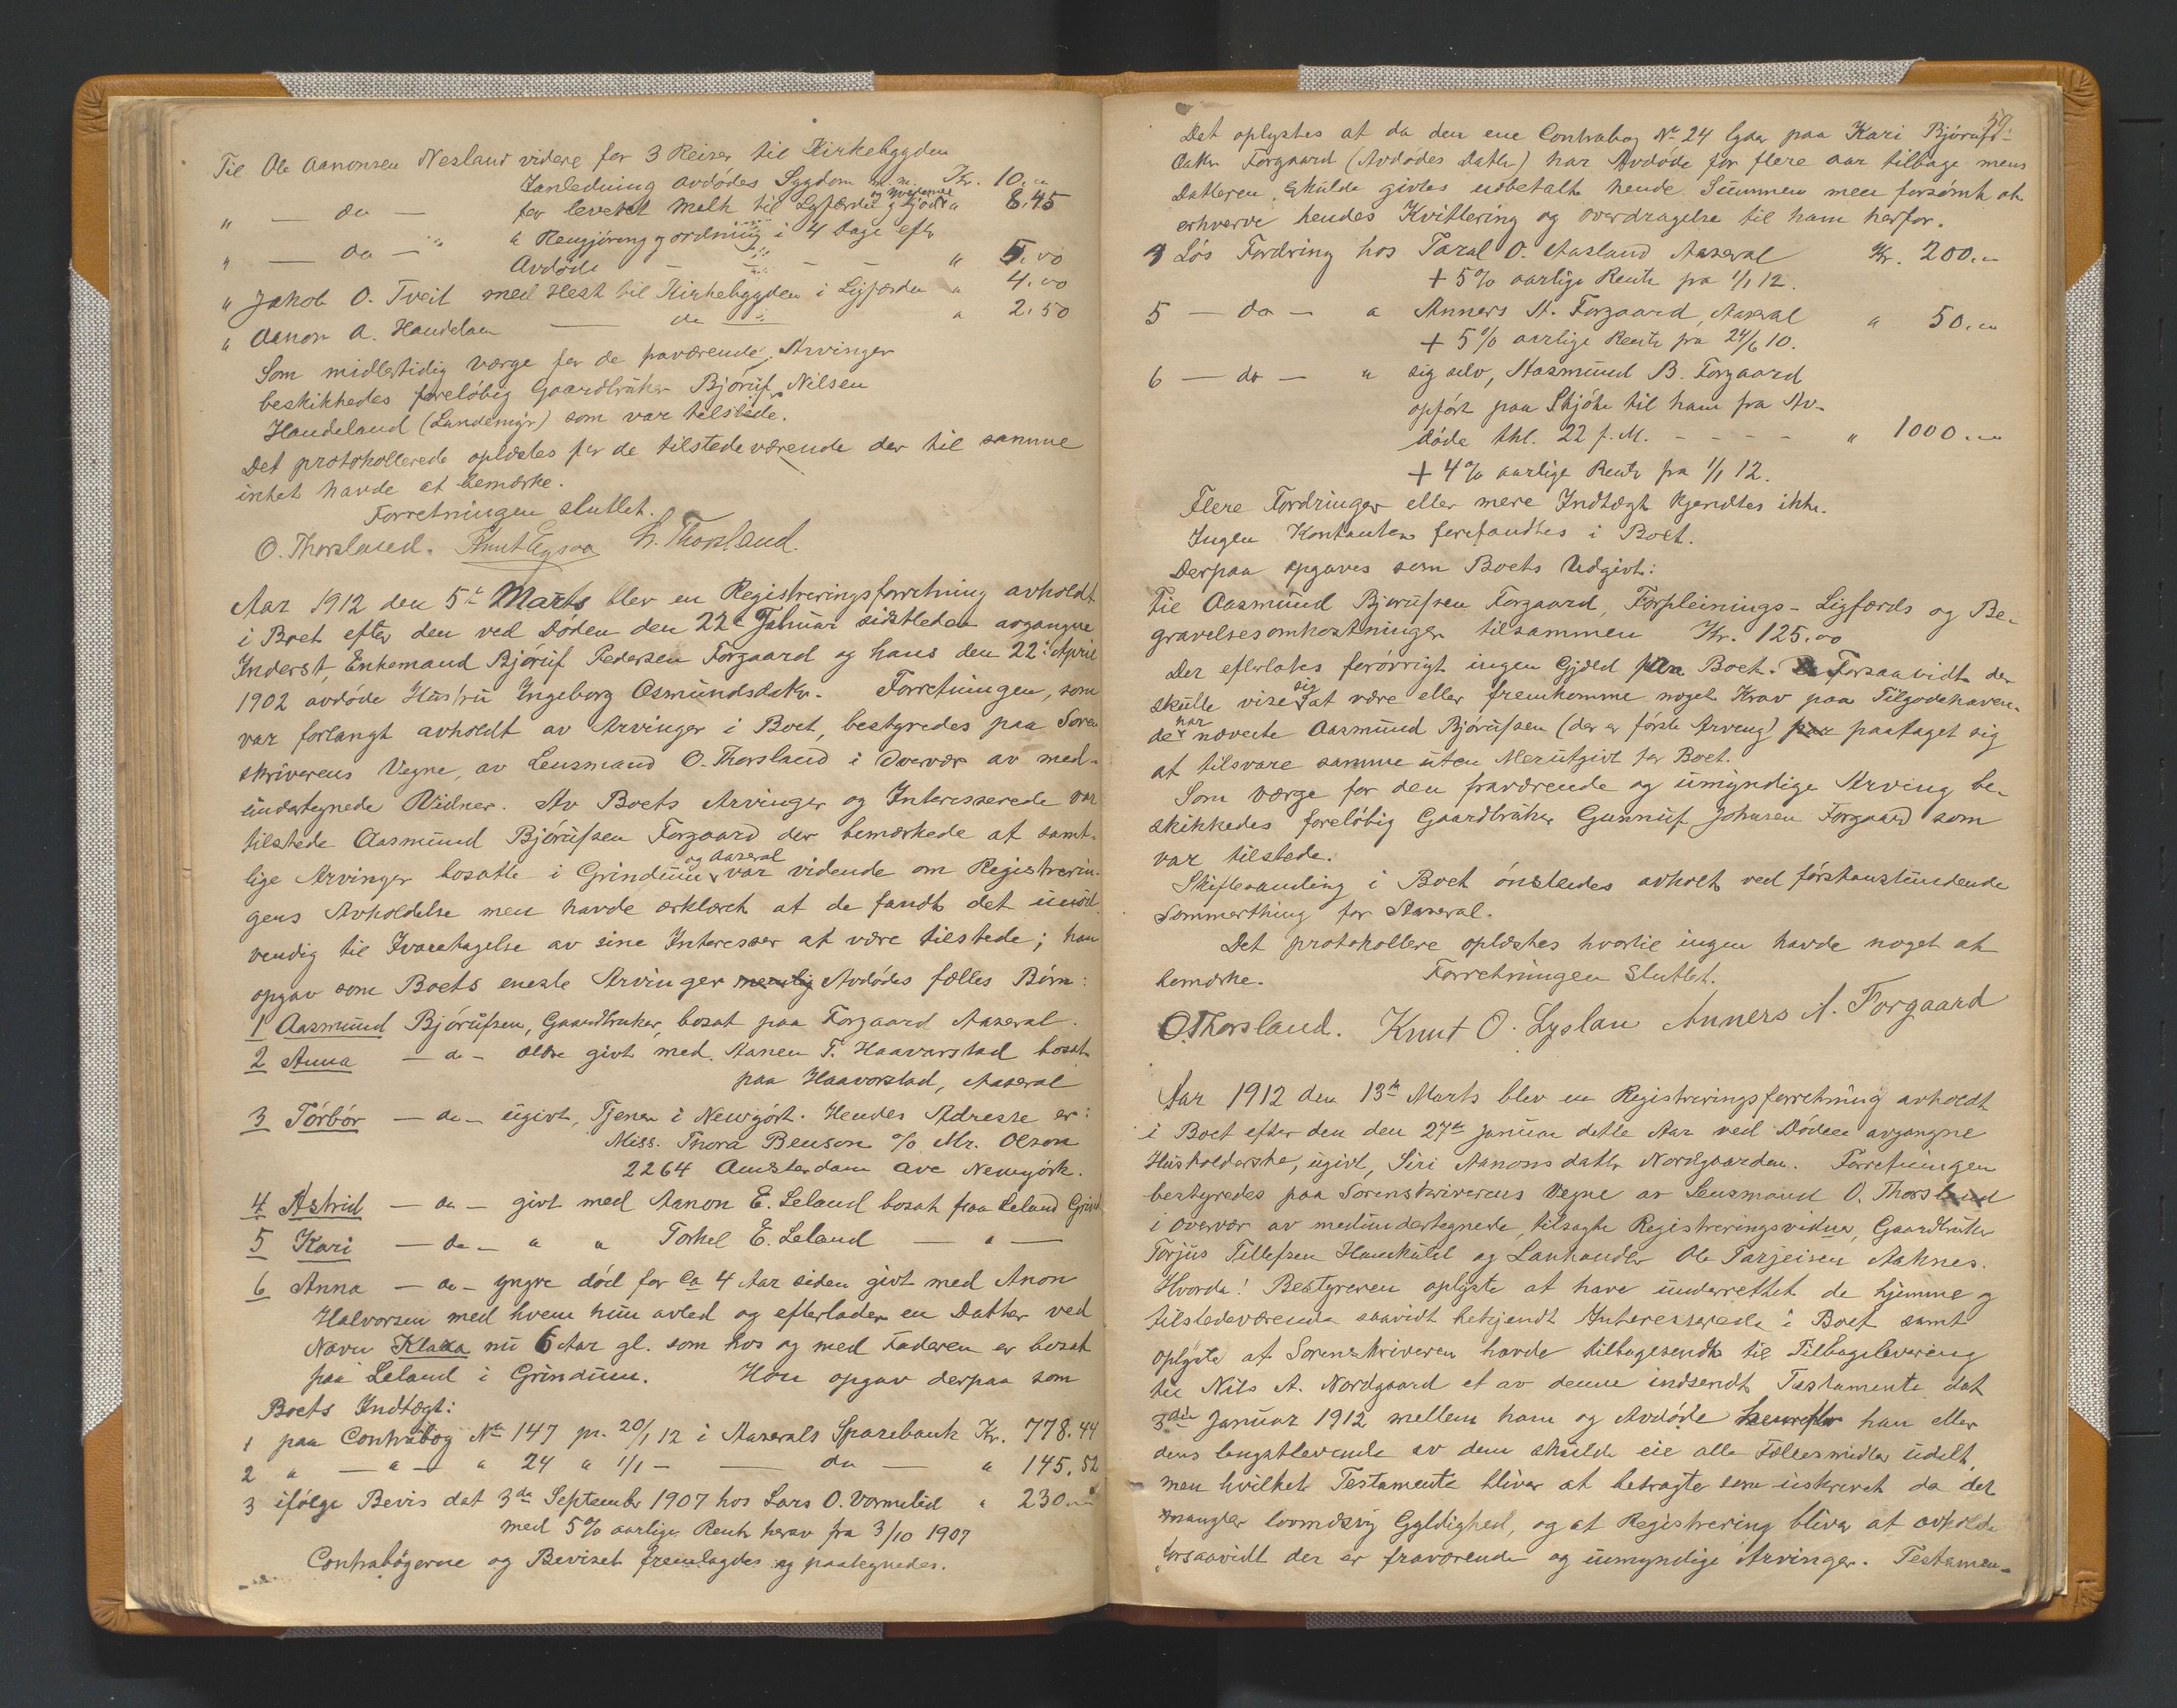 Til Ole Aanonsen Nesland videre for 3 Reiser til Kirkebygden
Ianledning avdødes Sygdom m.m. Kr. 10.00
" — do — for leveret Melk til Ligfærden og Gjøde " 8.45
" — do — " Rengjøring og ordning i 4 Dage efter
Avdøde — — — " 5.00
" Jakob O. Tveit med Hest til Kirkebygden i Ligfærden " 4.00
" Aanon A. Haudelan — do — " 2.50
Som midlertidig værge for de fraværende Arvinger
beskikkedes foreløbig Gaardbruker Bjøruf Nilsen
Haudeland (Lundemyr) som var tilstede.
Det protokollerede oplæstes for de tilstedeværende der til samme
intet havde at bemærke.
Forretningen sluttet.
O. Thorsland. Knut Lyslaa L. Thorsland.
Aar 1912 den 5te Marts blev en Registreringsforretning avholdt
i Boet efter den ved Døden den 22de Februar sidstleden avgangne
Inderst, Enkemand Bjøruf Pedersen Forgaard og hans den 22de April
1902 avdøde Hustru Ingeborg Osmundsdatr. Forretningen, som
var forlangt avholdt av Arvinger i Boet, bestyredes paa Soren
skriverens Vegne, av Lensmand O. Thorsland i Overvær av med-
undertegnede Vidner. Av Boets Arvinger og Interesserede var
tilstede Aasmund Bjørufsen Forgaard der bemærkede at samt-
lige Arvinger bosatte i Grindum og Aaseral var vidende om Registrerin-
gens Avholdelse men havde erklæret at de fandt det unød-
vendig til Ivaretagelse av sine Interesser at være tilstede; han
opgav som Boets eneste Arvinger nemlig Avdødes fælles Børn:
1 Aasmund Bjørufsen, Gaardbruker, bosat paa Forgaard Aaseral.
2 Anna — do — ældre givt med Aanen T. Haavorstad bosat
paa Haavorstad, Aaseral
3 Tórbór — do — ugivt, Tjener i Newyórk. Hendes Adresse er:
Miss. Thora Benson c/o Mr. Olson
2264 Amsterdam ave Newyórk.
4 Astrid — do — givt med Aanon E. Leland bosat paa Leland Grind
5 Kari — do — " " Torkel E. Leland — " —
6 Anna — do — yngre død for ca 4 Aar siden givt med Anon
Halvorsen med hvem hun avled og efterlader en Datter ved
Navn Klara nu 6 Aar gl. som hos og med Faderen er bosat
paa Leland i Grindum. Han opgav derpaa som
Boets Indtægt:
1 paa Contrabog No 147 pr. 20/1 12 i Aaserals Sparebank Kr. 778.44
2 " — " — " 24 " 1/1 — — do — " 145.52
3 ifølge Bevis dat 3de September 1907 hos Lars O. Vormelid " 230.00
med 5% aarlige Rente herav fra 3/10 1907
Contrabøgerne og Beviset fremlagdes og paategnedes.
59
Det oplystes at da den ene Contrabog No 24 lyder paa Kari Bjørufs-
datter Forgaard (Avdødes Datter) har Avdøde for flere aar tilbage mens
Datteren skulde givtes udbetalt hende Summen men forsømt at
erhverve hendes Kvittering og overdragelse til ham herfor.
4 Løs Fordring hos Taral O. Aasland Aaseral Kr. 200.00
+ 5% aarlige Rente fra 1/1 12.
5 — do — " Anners A. Forgaard, Aaseral " 50.00
+ 5% aarlige Rente fra 24/6 10.
6 — do — " sig selv, Aasmund B. Forgaard
opført paa Skjøte til ham fra Av-
døde thl. 22 f. M. - - - - " 1000.00
+ 4% aarlige Rente fra 1/1 12.
Flere Fordringer eller mere Indtægt kjendtes ikke.
Ingen Kontanter forefandtes i Boet.
Derpaa opgaves som Boets Udgivt:
Til Aasmund Bjørufsen Forgaard, Forpleinings- Ligfærds og Be-
gravelsesomkostninger tilsammen Kr. 125.00
Der efterlates forøvrigt ingen Gjæld paa Boet. Forsaavidt der
skulle vise sig at være eller fremkomme noget Krav paa Tilgodehaven-
de har nævnte Aasmund Bjørufsen (der er første Arving) paataget sig
at tilsvare samme uten Merutgivt for Boet.
Som værge for den fraværende og umyndige Arving be-
skikkedes foreløbig Gaardbruker Gunnuf Johnsen Forgaard som
var tilstede.
Skiftesamling i Boet ønskedes avholdt ved førstkommende
Sommerthing for Aaseral.
Det protokollere oplæstes hvortil ingen havde noget at
bemærke. Forretningen sluttet.
O. Thorsland. Knut O. Lyslan Anners A. Forgaard
Aar 1912 den 13de Marts blev en Registreringsforretning avholdt
i Boet efter den den 27de Januar dette Aar ved Døden avgangne
Husholderske, ugivt, Siri Aanonsdatter Nordgaarden. Forretningen
bestyredes paa Sorenskriverens Vegne av Lensmand O. Thorsland
i overvær av medundertegnede, tilsagte Registreringsvidner, Gaardbruker
Torjus Tellefsen Homskuld og Lanhandler Ole Tarjeisen Aaknes.
Hvorda! Bestyreren oplyste at have underrettet de hjemme og
tilstedeværende saavidt bekjendt Interesserede i Boet samt
oplyste at Sorenskriveren havde tilbagesendt til Tilbagelevering
til Nils A. Nordgaard et av denne indsendt Testamente dat
3die Januar 1912 mellem ham og Avdøde hvorefter han eller
dens længstlevende av dem skulde eie alle Fællesmidler udelt,
men hvilket Testamente bliver at betragte som uskrevet da det
mangler lovmæssig Gyldighed, og at Registrering bliver at avholde
forsaavidt der er fraværende og umyndige Arvinger. Testamen-